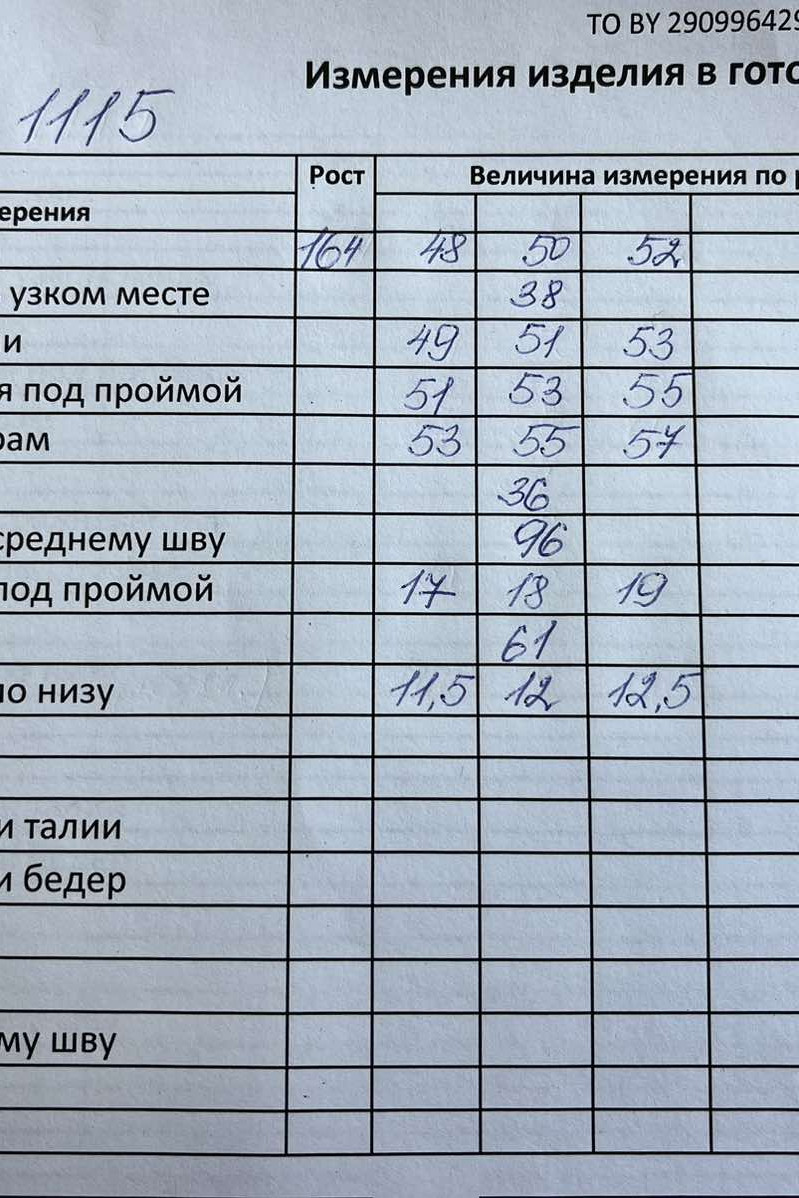 ТО BY 290996429
Измерения изделия в гото
1115
Рост Величина измерения по р
ерения
164 48 50 52
узком месте 38
и 49 51 53
я под проймой 51 53 55
рам 53 55 57
36
среднему шву 96
под проймой 17 18 19
61
по низу 11,5 12 12,5
и талии
и бедер
му шву